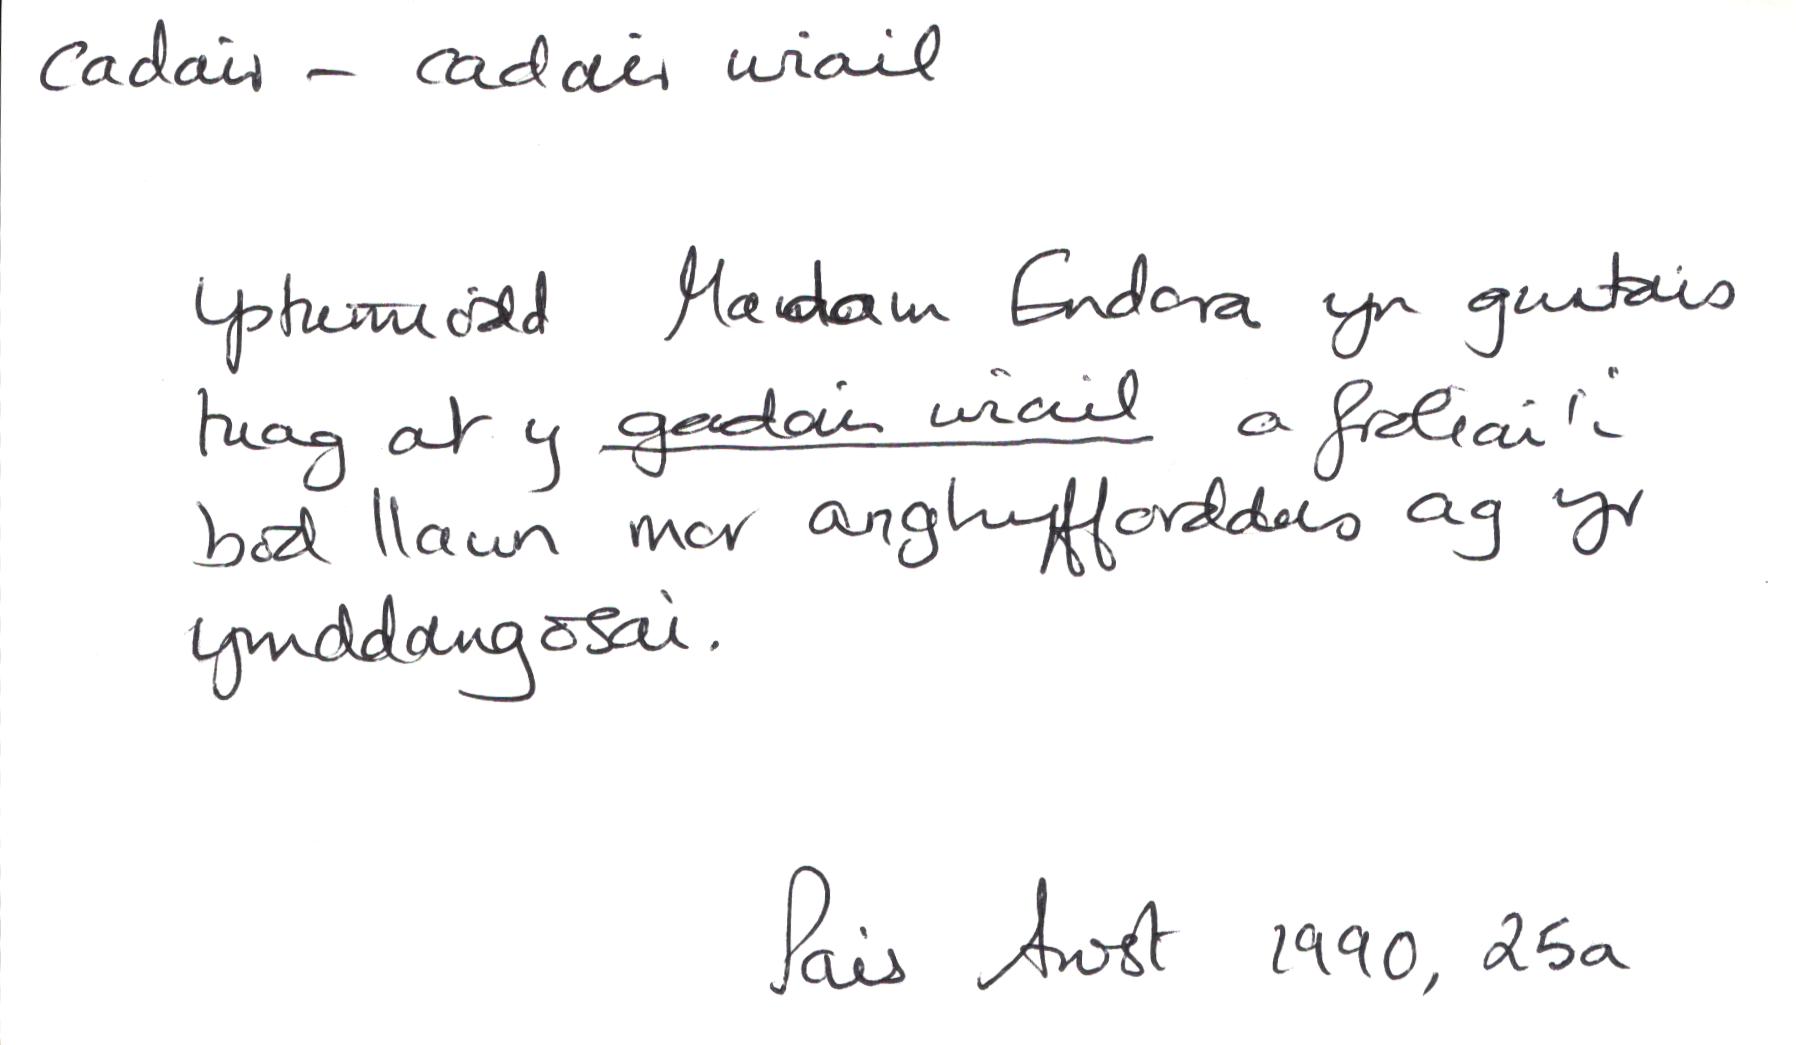 cadair – cadair wiail
ystumiodd Madam Endora yn gwrtais
tuag at y gadair wiail a brofai'i
bod llawn mor anghyfforddus ag yr
ymddangosai.
Pais Awst 1990, 25a